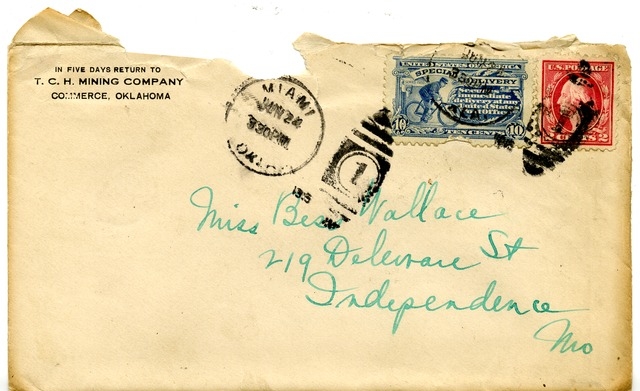 IN FIVE DAYS RETURN TO
T. C. H. MINING COMPANY
COMMERCE, OKLAHOMA
MIAMI
JUN 24
330PM
OKLA.
1
UNITED STATES OF AMERICA
SPECIAL DELIVERY
Secures
immediate
delivery at any
United States
Post Office
10 TEN CENTS 10
U.S. POSTAGE
2 CENTS 2
Miss Bess Wallace
219 Delaware St
Independence
Mo